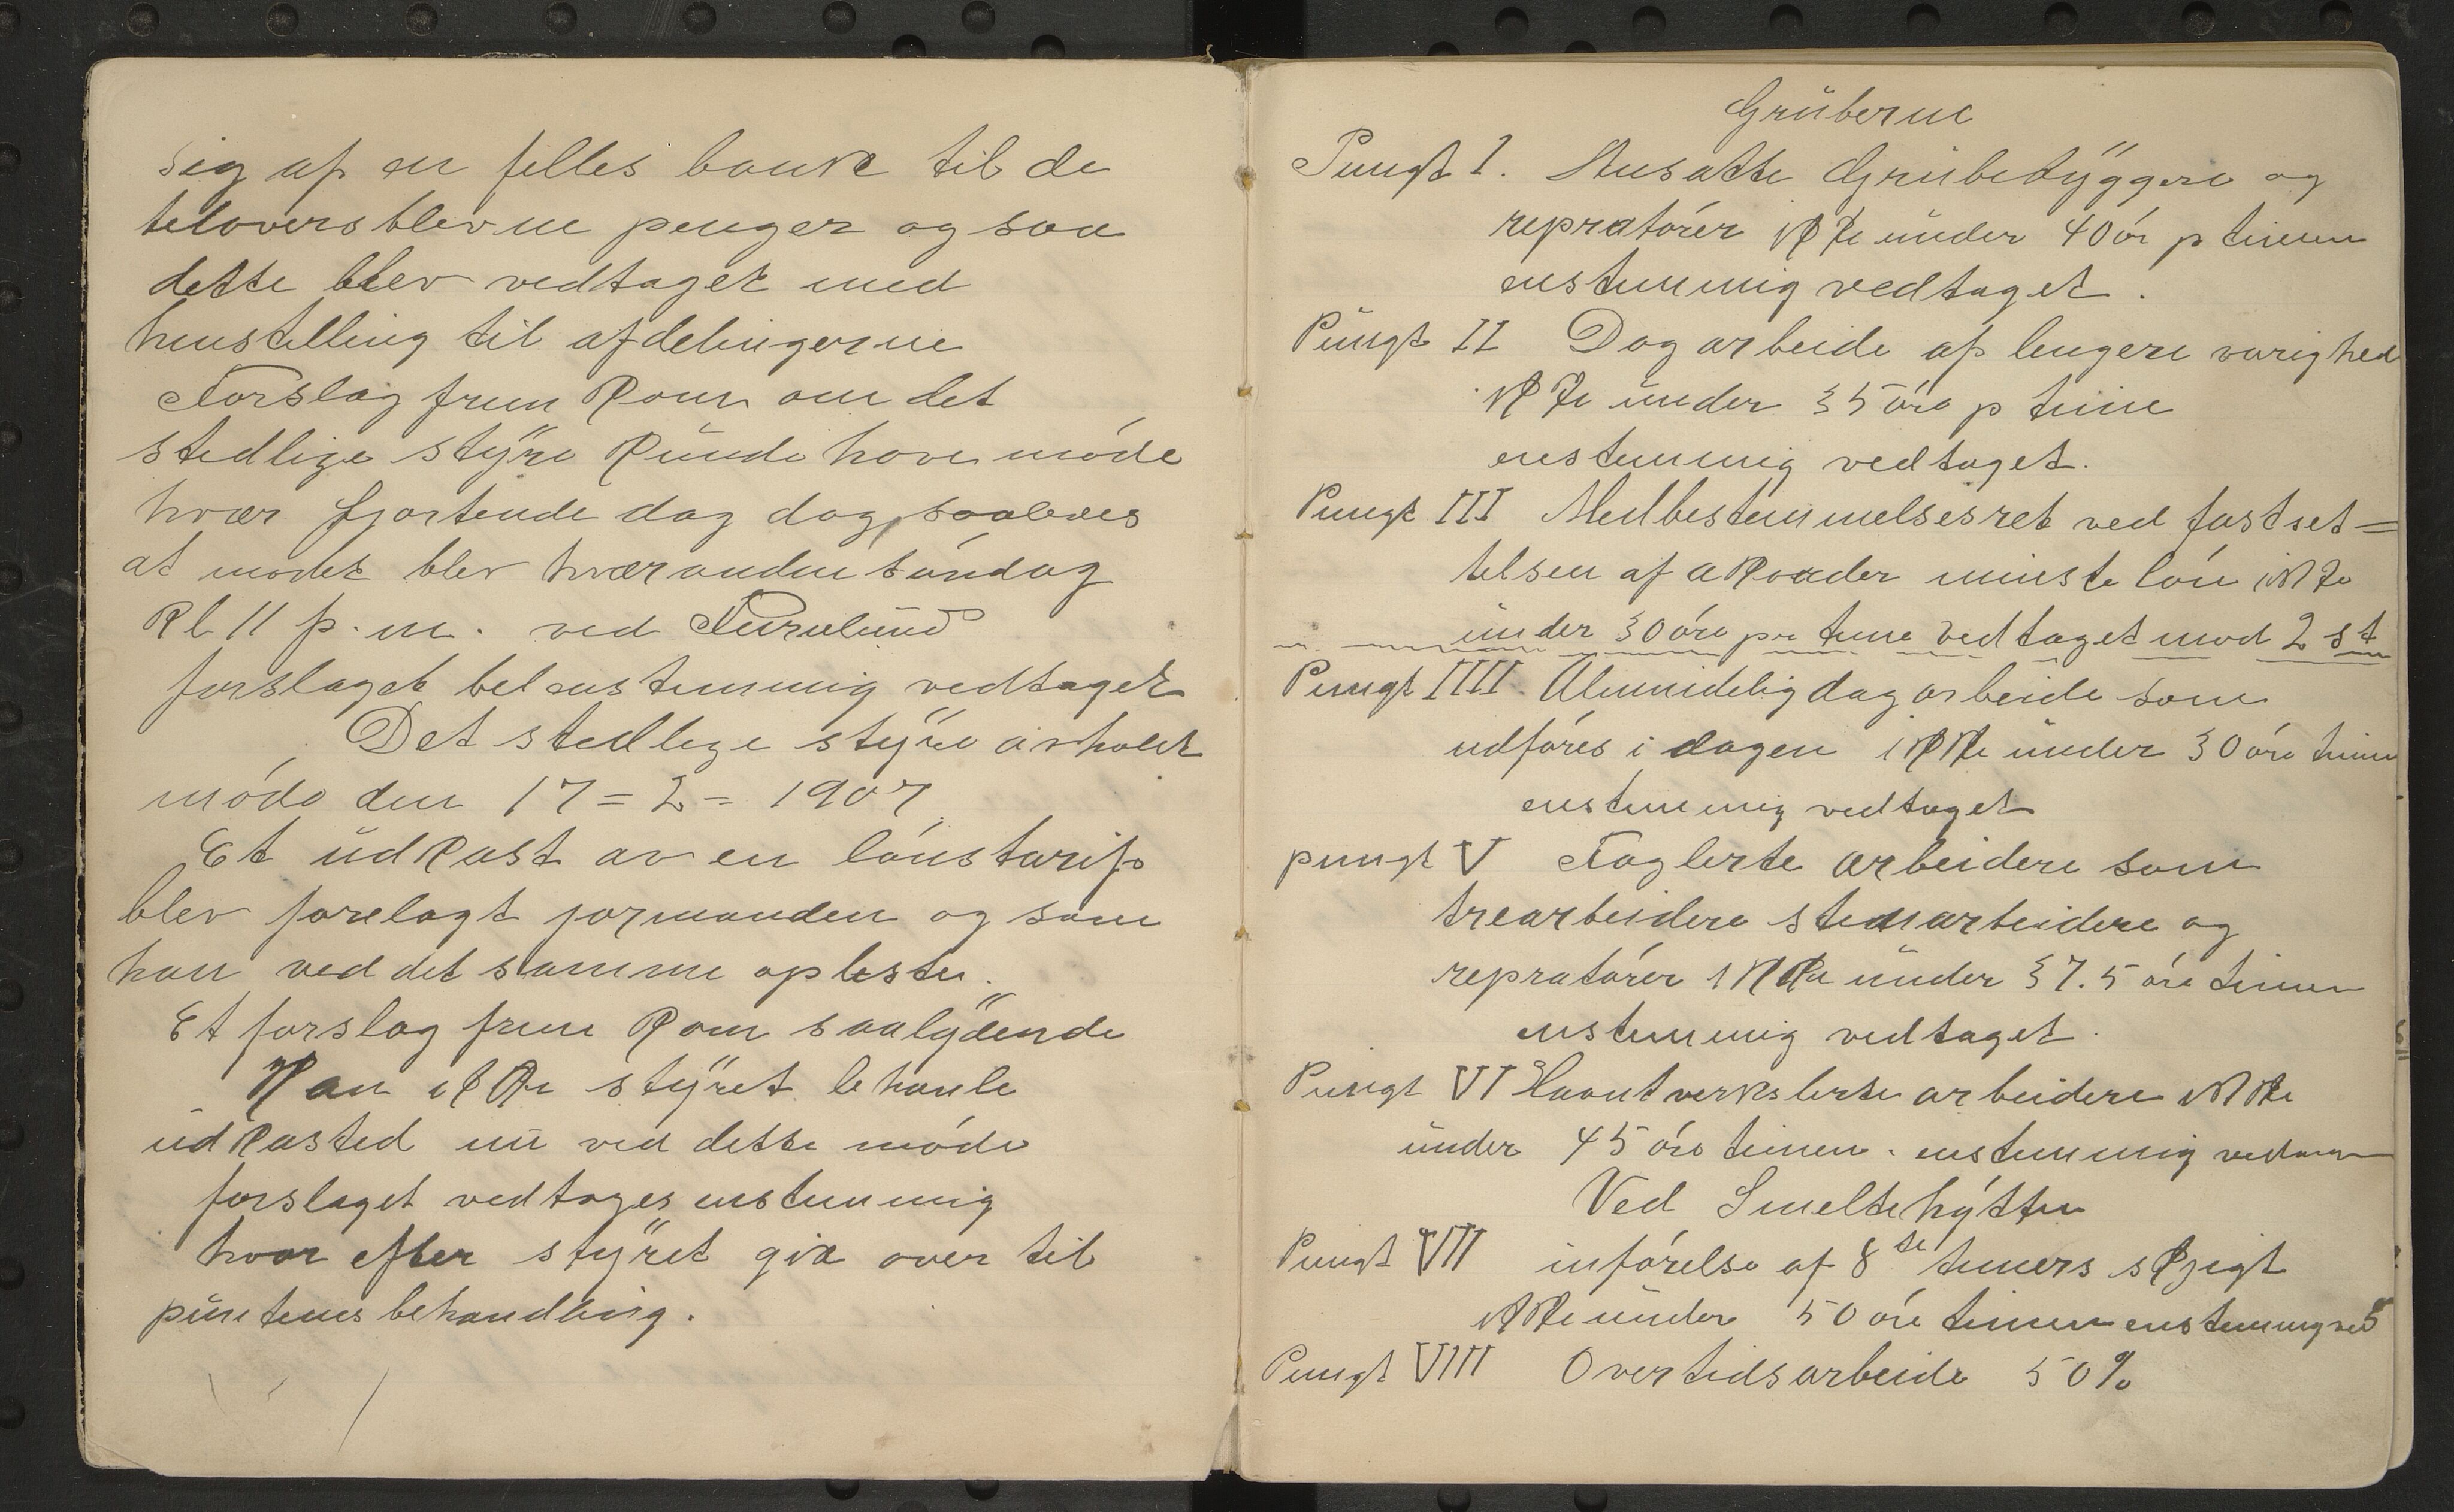 sig af en felles bank til de
teloversblevne penger og saa
dette blev vedtaget med
henstelling til afdelingerne
Forslag frem kom om det
stedlige styre kunde have møde
hvær fjortende dag dag, saaledes
at mødet blev hværanden søndag
kl 11 f.m. ved Furulund
forslaget bel enstemmig vedtaget
Det stedlige styre avholdt
møde den 17=2=1907
Et udkast av en lønstarif
blev forelagt formanden og som
han ved det samme opleste.
Et forslag frem kom saalydende
Kan ikke styret behanle
udkasted nu ved dette møde
forslaget vedtages enstemmig
hvor efter styret gik over til
puntenes behandling.
Gruberne
Pungt 1. Ansatte Grubebyggere og
repratører ikke under 40 ør p timen
enstemmig vedtaget.
Pungt II Dagarbeide af lengere varighed
ikke under 35 øre p time
enstemmig vedtaget.
Pungt III Medbestemmelsesret ved fastset=
telsen af akorder minste løn ikke
under 30 øre pr time vedtaget mod 2 st
Pungt IIII Almindelig dagarbeide som
udføres i dagen ikke under 30 øre timen
enstemmig vedtaget
pungt V Faglerte arbeidere som
trearbeidere stenarbeidere og
repratører ikke under 37.5 øre timen
enstemmig vedtaget.
Pungt VI Haantverkslerte arbeidere ikke
under 45 øre timen. enstemmig
Ved Smeltehytten
Pungt VII inførelse af 8 te timers skjigt
ikke under 50 øre timen enstemmig ved
Pungt VIII Overtidsarbeide 50%